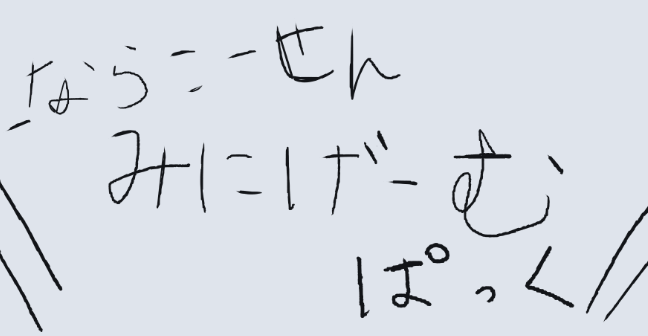 ならこーせん
みにげーむ
ぱっく